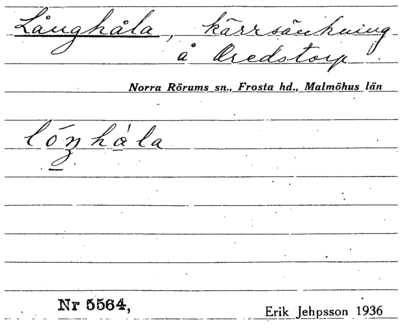 Långhåla, kärrsänkning
å Oredstorp
Norra Rörums sn., Frosta hd., Malmöhus län
lóŋhåla
Nr 5564,
Erik Jehpsson 1936